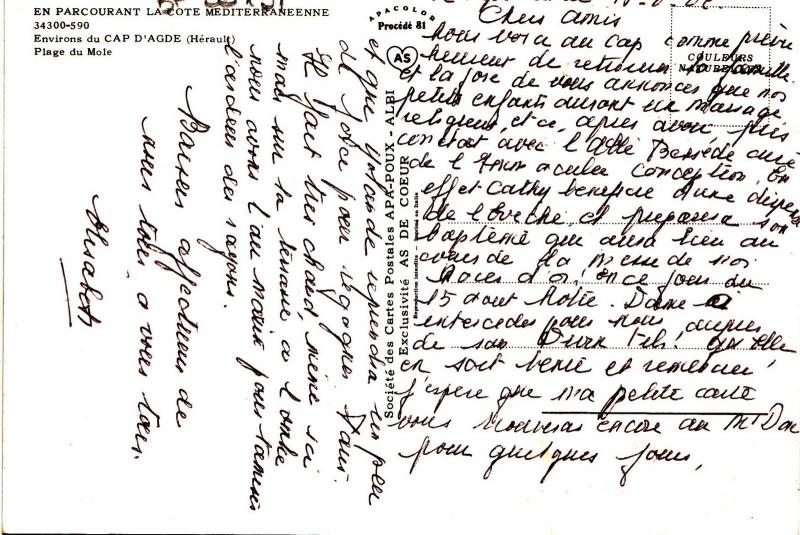 EN PARCOURANT LA COTE MEDITERRANEENNE
34300-590
Environs du CAP D'AGDE (Hérault)
Plage du Mole
APACOLOR
Procédé 81
AS
COULEURS
NATURELLES
Société des Cartes Postales APA-POUX - ALBI
Exclusivité AS DE COEUR
Reproduction interdite - Imprimé en Italie
Chers amis
Nous voici au Cap comme prévu
heureux de retrouver la famille
et la joie de vous annoncer que nos
petits enfants auront un mariage
religieux, et ce, après avoir pris
contact avec l'abbé Bessède curé
de l'Immaculée Conception. En
effet Cathy bénéficie d'une dispense
de l'Evêché et préparera son
baptême qui aura lieu au
cours de la messe de nos
Noces d'or, en ce jour du
15 aout Notre-Dame
intercedes pour nous auprès
de son Divin fils, qu'elle
en soit bénie et remerciée
J'espère que ma petite carte
vous trouvera encore au Mt Dore
pour quelques jours,
et que Yolande reprendra un peu
de force pour regagner Paris.
Il fait très chaud, même ici
mais sur la terrasse à l'ombre
nous avons l'air marin pour tamiser
l'ardeur des rayons.
Baisers affectueux de
nous tous, à vous tous.
Elisabeth